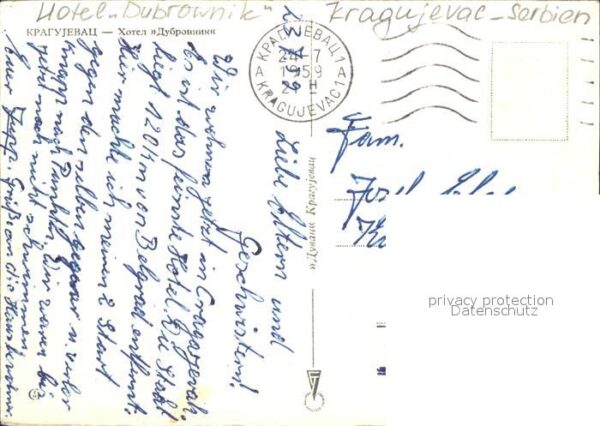 Hotel „Dubrownik" Kragujevac - Serbien
КРАГУЈЕВАЦ — Хотел »Дубровник«
КРАГУЈЕВАЦ 1
24-7
1959
KRAGUJEVAC 1
Liebe Eltern und
Geschwister!
Wir wohnen jetzt in
Es ist das feinste Hotel. Die Stadt
liegt 120 km von Belgrad entfernt.
Hier machte ich meinen 2. Start
gegen den selben Gegner u. verlor
knapp nach Punkten. Wir waren bis
jetzt noch nicht schwimmen.
Euer Grüße an die
»Дувани Крагујевац
Fam.
Josef
privacy protection
Datenschutz